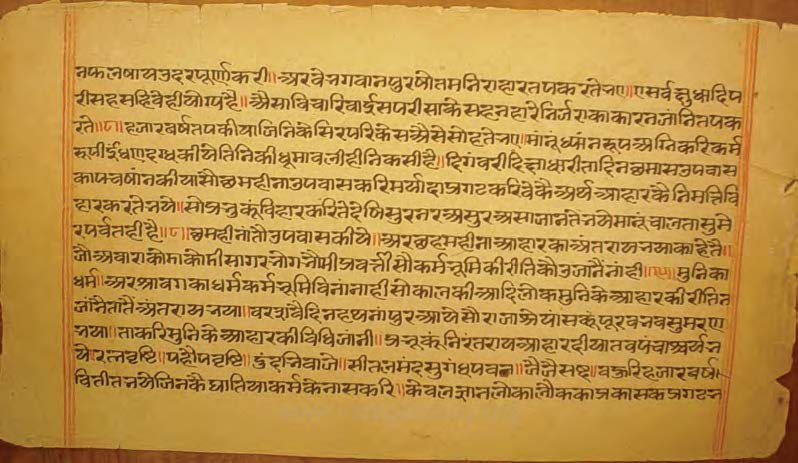 नफलषायउदरपूर्णकरी॥अरवेभगवानपुरषोतमनिराहारतपकरतेभए॥एसर्वक्षुधादिप
रीसहसहिवेहीयोग्यहै॥अैसाविचारिवाईसपरीसाकेसहनहारेनिर्जराकाकारनजानितपक
रते॥८॥हजारवर्षतपकीयाजिनिकेसिरपरिकेसअैसेसोहतेभए॥मानूंध्यांनरूपअग्निकरिकर्म
रूपीईंधणदग्धकीयेतिनिकीधूमावलीहीनिकसीहै॥दिगंवरीदिक्षाधारीतादिनछमासउपवास
कापचषांनकीयासोछमहीनाउपवासकरिमर्यादाप्रगटकरिवेकैअर्थआहारकैनिमत्तिवि
हारकरतेभये॥सोप्रभुकूंविहारकरितेदेषिसुरनरअसुरअसाजानतेभयेमानूंचालतासुमे
रपर्वतहीहै॥८॥छमहीनांतौउपवासकीये॥अरछहमहीनाआहारकाअंतरायभयाकाहेतै॥
जौअवाराकोडाकोडीसागरभोगभोमीप्रवर्त्तीसौकर्मभूमिकीरीतिकौउजानैंनांही॥९॥मुनिका
धर्म॥अरश्रावगकाधर्मकर्मभूमिविनांनाहीसोकालकीआदिलोकमुनिकेआहारकीरीतिन
जांनैतातैंअंतरायभया॥वरषवैदिनहथनांपुरआयेसौराजाश्रेयांसकूंपूरवभवसुमरण
भया॥ताकरिमुनिकेआहारकीविधिजांनी॥प्रभूकूंनिरंतरायआहारदीयातवपंचाश्चर्यभ
ये॥रत्नवृष्टि॥पहौपवृष्टि॥दुंदभिवाजे॥सीतलमंदसुगंधपवन॥जैजैसब्द॥वहुरिहजारवर्षा
वितीतभयेजिनकैघातियाकर्मकेनासकरि॥केवलज्ञानलोकालौककाप्रकासकप्रगटभ